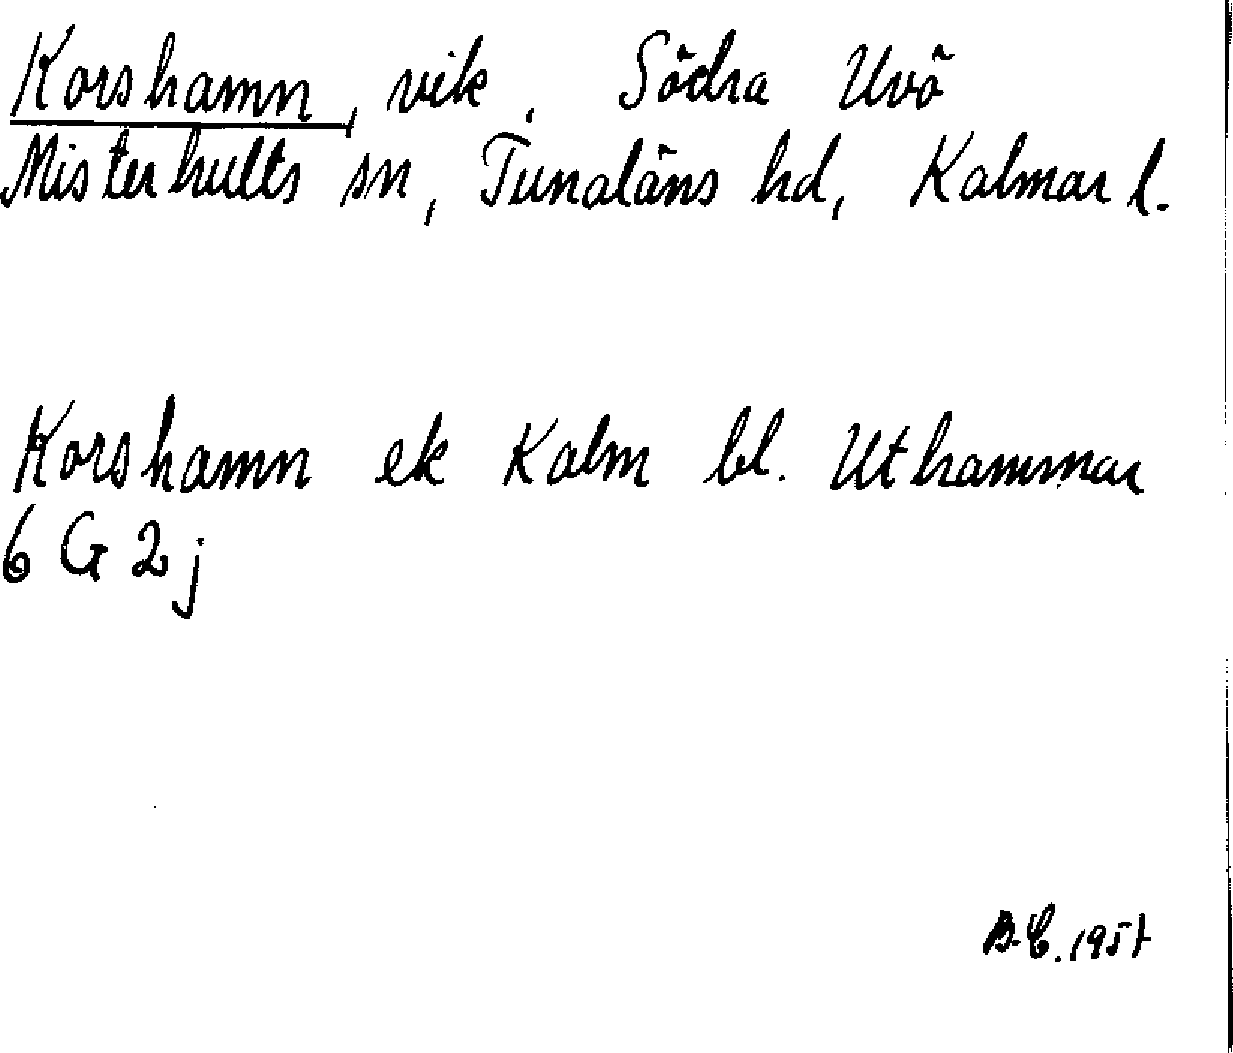 Korshamn, vik. Södra Uvö
Misterhults sn, Tunaläns hd, Kalmar l.
Korshamn ek Kalm bl. Uthammar
6 G 2 j
B.E. 1957